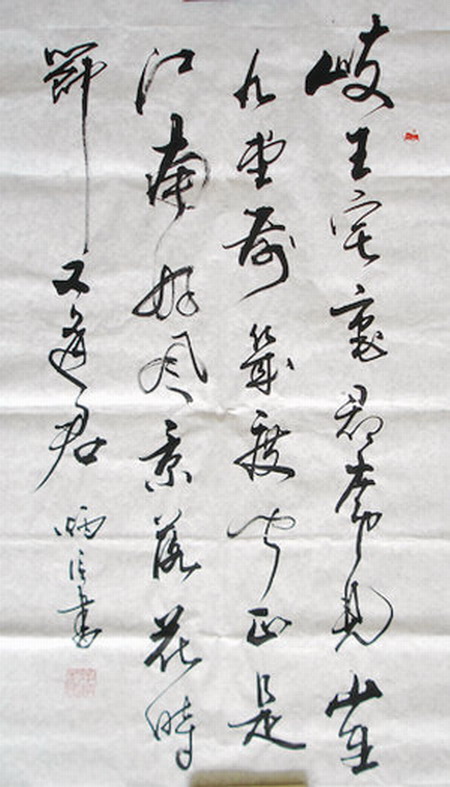 岐王宅裏尋常見崔
九堂前幾度聞正是
江南好風景落花時
節又逢君
炳信書